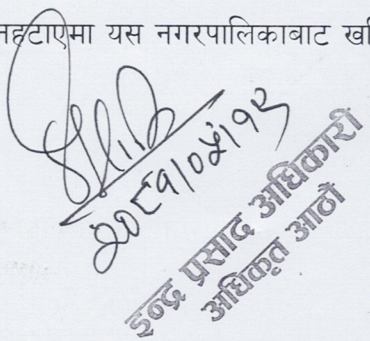 नहटाएमा यस नगरपालिकाबाट
२०८१/०५/१९
इन्द्र प्रसाद अधिकारी
अधिकृत आठौं